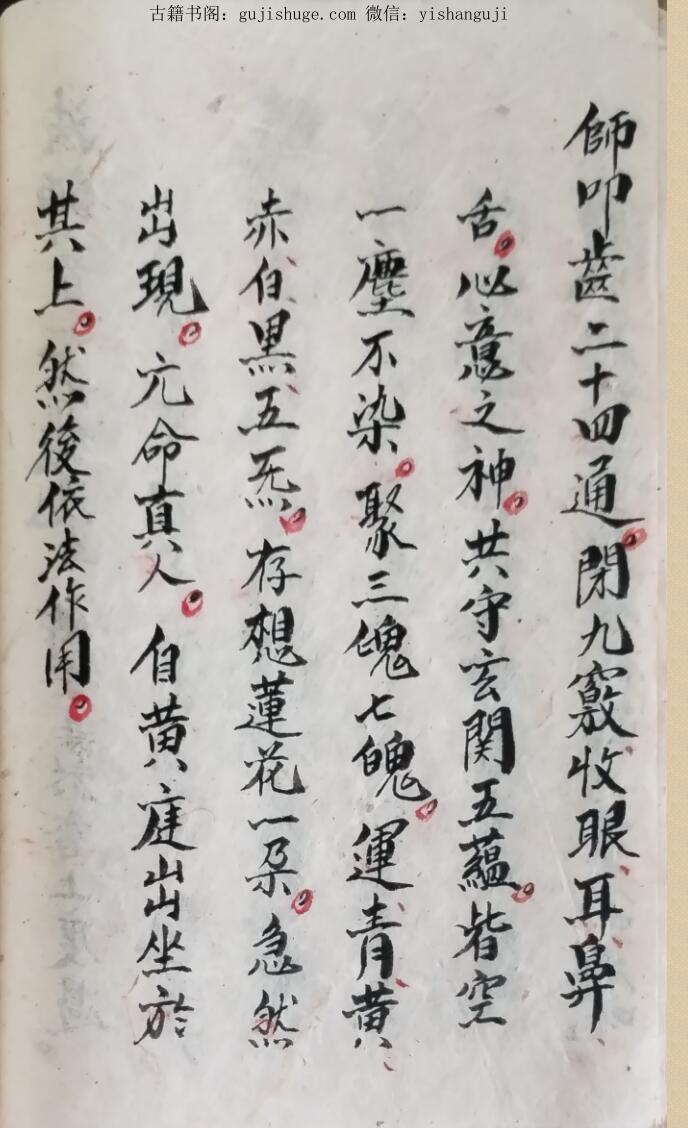 古籍书阁：gujishuge.com 微信：yishanguji
師叩齒二十四通。閉九竅收眼、耳、鼻、
舌。心意之神。共守玄関五蘊。皆空
一塵不染。聚三魂七魄。運青、黄、
赤、白、黒、五炁。存想蓮花一朶。急然
出現。元命真人。自黄庭出坐於
其上。然後依法作用。